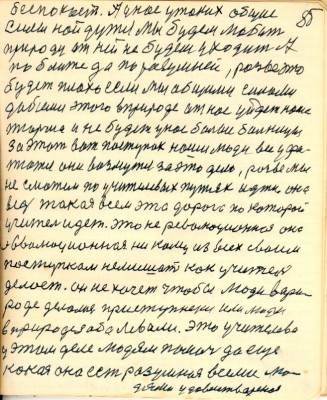 85
беспокоет. А у нас у таких общие
силы ной дужи мы будем любить
природу от ней не будем уходить А
по ближе да по разумней, разве это
будет плохо если мы общими силами
добъемся этого в природе от нас уйдет
и не будет у нас больше больницы
за этот вот поступок наши люди все
они возмутся за это дело, разве мы
не сможем по учителевых путях идти она
ведь такая всем эта дорога по которой
учитель идет. это не революционная она
эволюционная ни кому из всех своим
поступкам не мешает как учитель
делает. он не хочет чтобы люди в при
роде делались преступники или люди
в природе заболевали. Это учителево
у этом деле людям помоч да еще
какая она есть разумная всеми лю
дями удовлетворенная